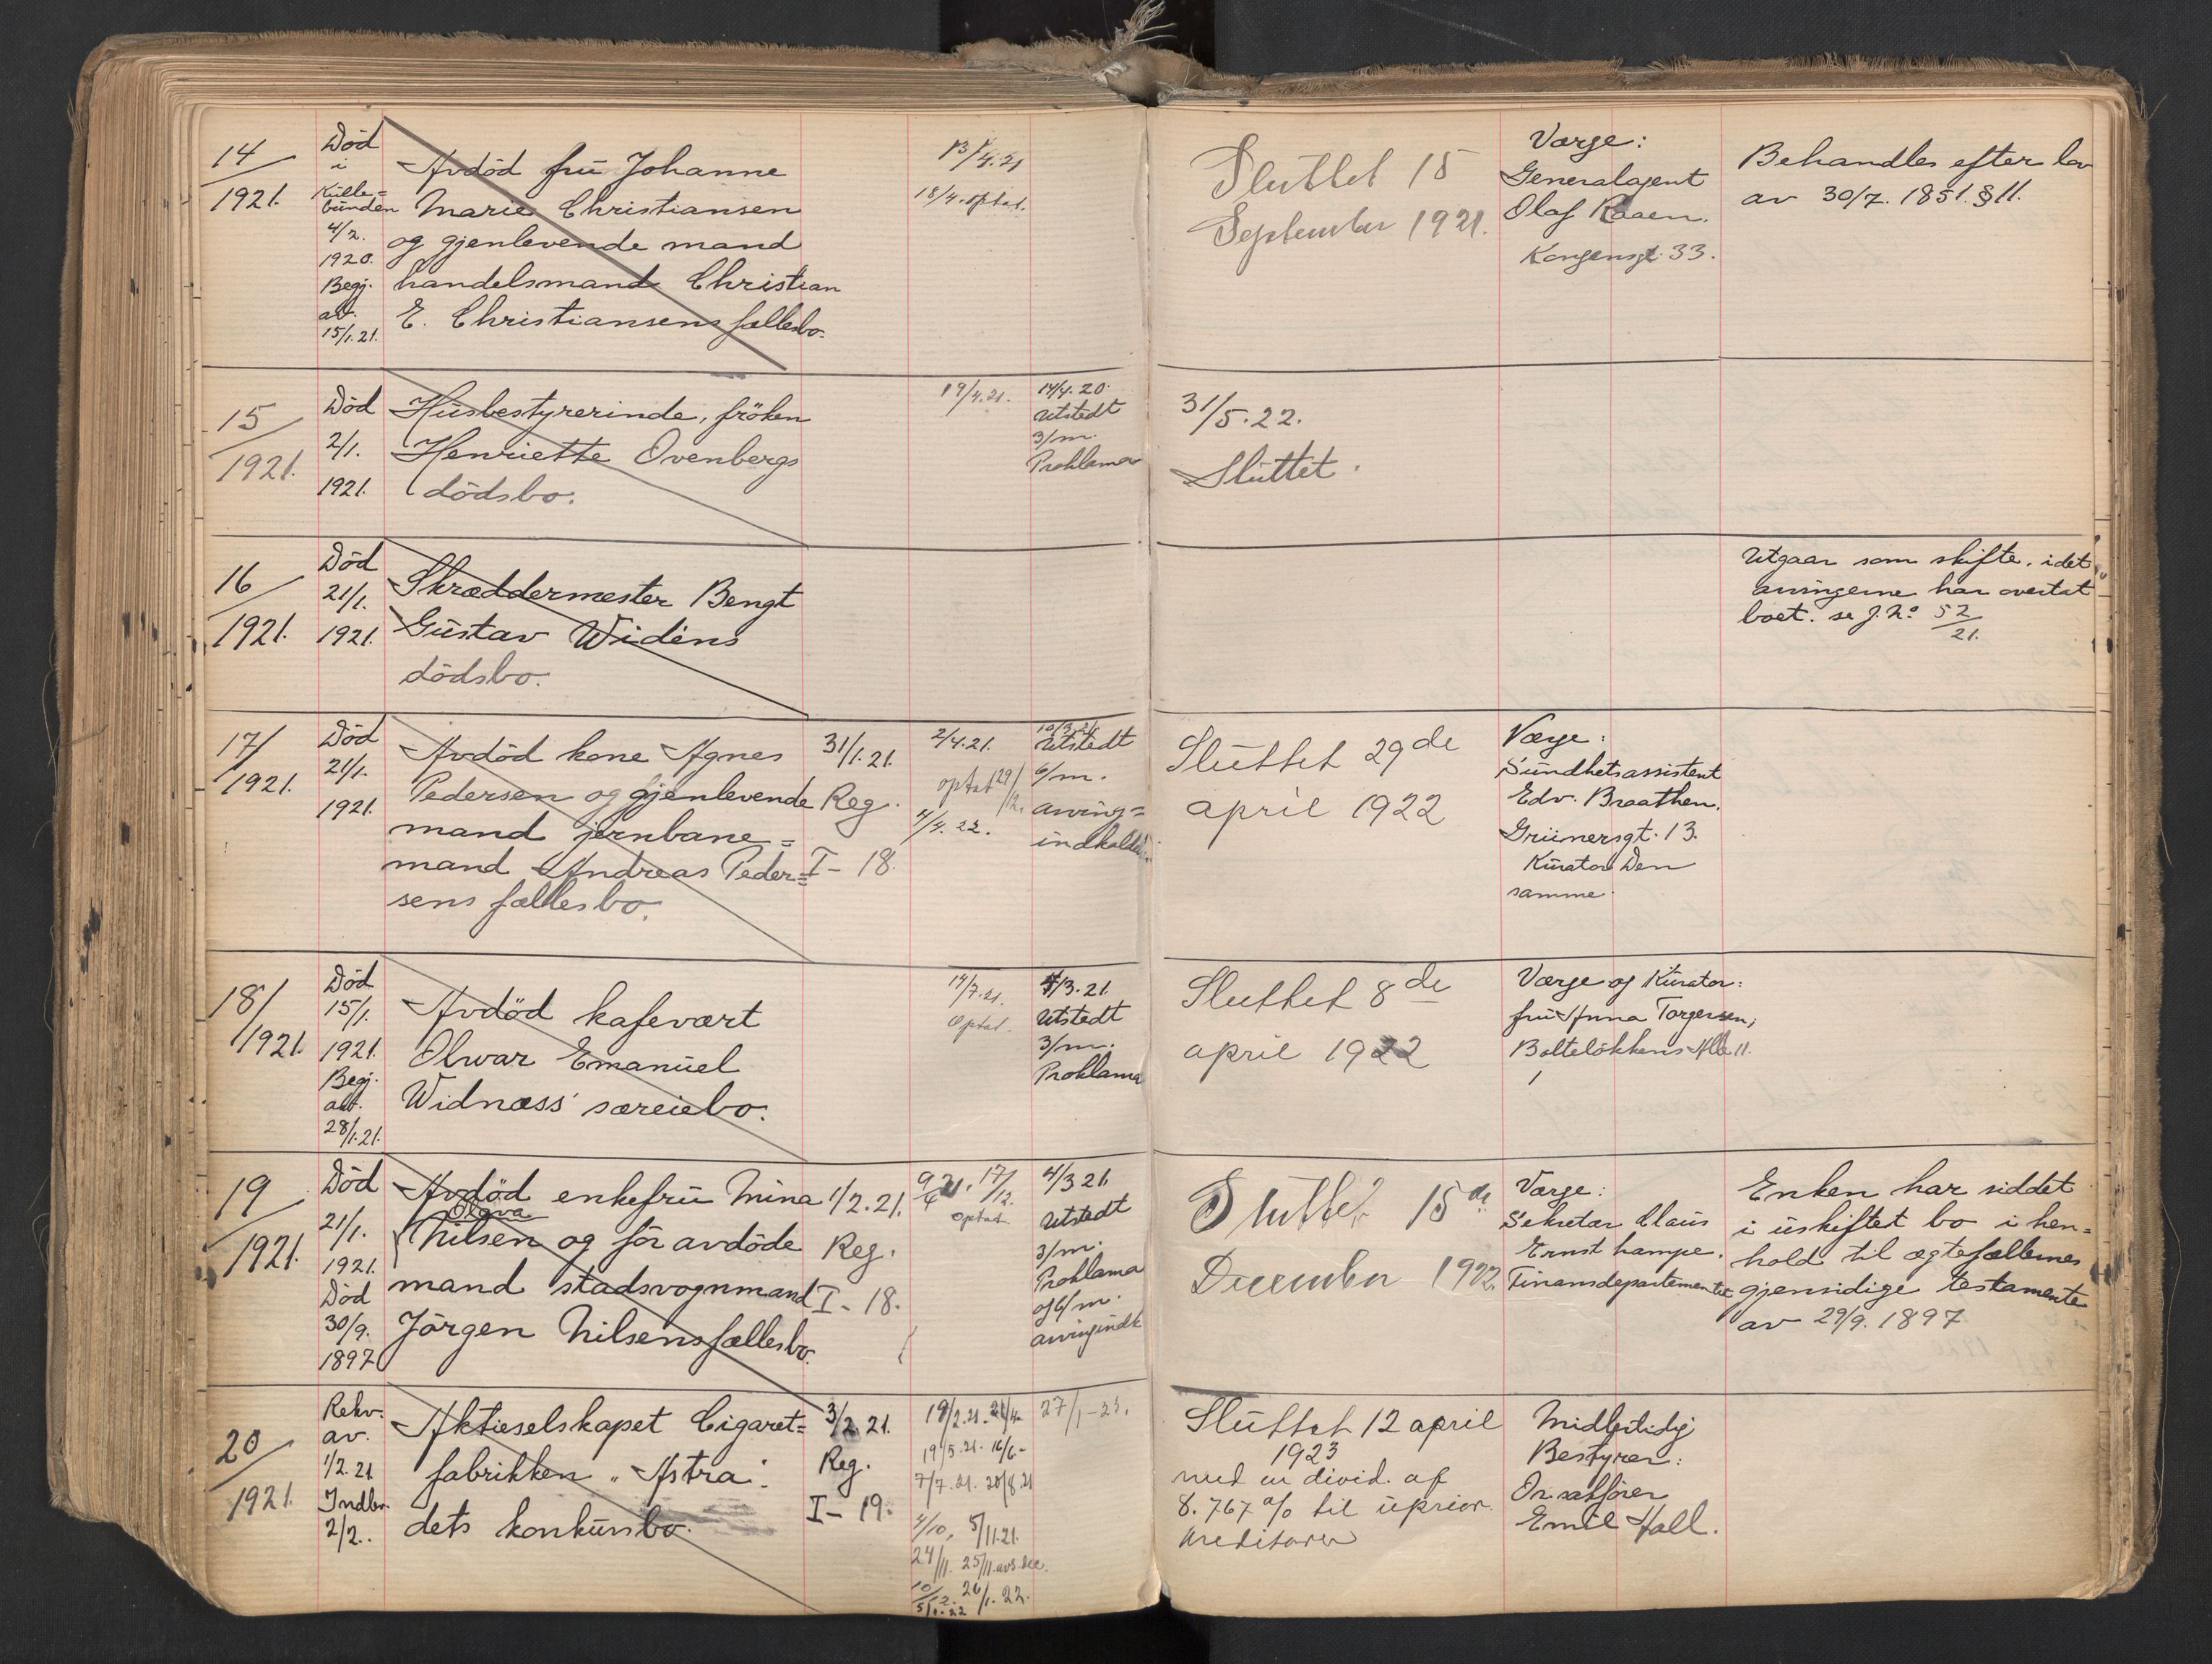 14/1921.
Død
i
Kulle=
bunden
4/2.
1920.
Begj.
av.
15/1.21.
Avdöd frü Johanne
Marie Christiansen
og gjenlevende mand
handelsmand Christian
E. Christiansens fællesbo.
13/4.21
18/4. optat.
Slüttet 15
September 1921.
Værge:
Generalagent
Olaf Raaen.
Kongensgt. 33.
Behandles efter lov
av 30/7. 1851. § 11.
15/1921.
Død
2/1.
1921.
Hüsbestyrerinde, fröken
Henriette Ovenbergs
dödsbo.
19/4.21.
14/4.20.
Utstedt
3/m.
Proklama
31/5.22.
Slüttet.
16/1921.
Død
21/1.
1921.
Skræddermester Bengt
Güstav Widéns
dödsbo.
Utgaar som skifte, idet
arvingerne har overtat
boet. se J. No 52/21.
17/1921.
Død
21/1.
1921.
Avdöd kone Agnes
Pedersen og gjenlevende
mand jernbane=
mand Andreas Peder=
sens fællesbo.
31/1.21.
Reg.
I - 18.
2/4.21.
optat 29/12.
4/4.22.
10/3.21
Utstedt
6/m.
arving=
indkaldelse
Slüttet 29de
april 1922
Værge:
Sündhetsassistent
Edv. Braathen.
Grünersgt. 13.
Kürator Den
samme.
18/1921.
Død
15/1.
1921.
Begj.
av.
28/1.21.
Avdöd kafevært
Olwar Emanüel
Widnæss' særeiebo.
14/7.21.
Optat.
4/3.21.
Utstedt
3/m.
Proklama
Slüttet 8de
april 1922
Værge og Kürator:
frü Anna Torgersen,
Bolteløkkens Alle 11.
19/1921.
Død
21/1.
1921.
Død
30/9.
1897
Avdöd enkefrü Mina
Olava
Nilsen og før avdöde
mand stadsvognmand
Jörgen Nilsens fællesbo.
1/2.21.
Reg.
I - 18.
9/4 21. 17/12.
optat
4/3 21.
Utstedt
3/m.
Proklama
og 6/m.
arvingindk
Slüttet 15de
December 1922.
Værge:
Sekretær Claüs
Ernst hampe.
Finansdepartementet
Enken har siddet
i üskiftet bo i hen=
hold til ægtefællernes
gjensidige testamente
av 29/9. 1897
20/1921.
Rekv.
av.
1/2.21
Indlev.
2/2.
Aktieselskapet Cigaret=
fabrikken "Astra".
dets konkürsbo.
3/2.21.
Reg.
I - 19.
18/2.21. 21/4.
19/5.21. 16/6.
7/7.21. 20/8.21
4/10. 5/11.21.
24/11. 25/11. avs. dec.
10/12. 26/1.22.
5/1.22
27/1-23.
Slüttet 12 april
1923
med en divid. af
8.767 % til üprior.
kreditorer
Midlertidig
Bestyrer:
Or. sakfører
Emil Hall.